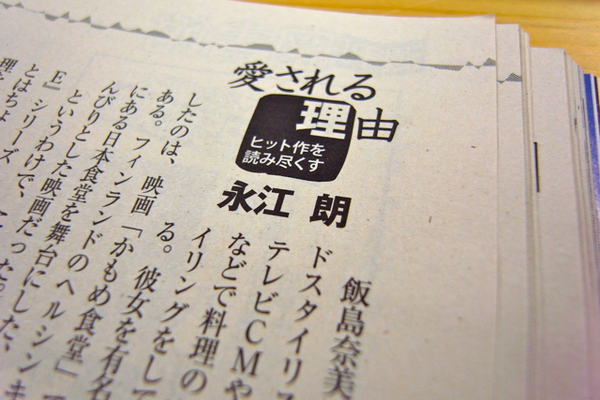 愛される
理由
ヒット作を
読み尽くす
永江 朗
飯島奈美
ドスタイリス
テレビCMや
などで料理の
イリングをして
る。彼女を有名
したのは、映画「かもめ食堂」で
ある。フィンランドのヘルシンキ
にある日本食堂を舞台にした、
んびりとした映画だった。
というわけで、
E』シリーズ
とはちょ